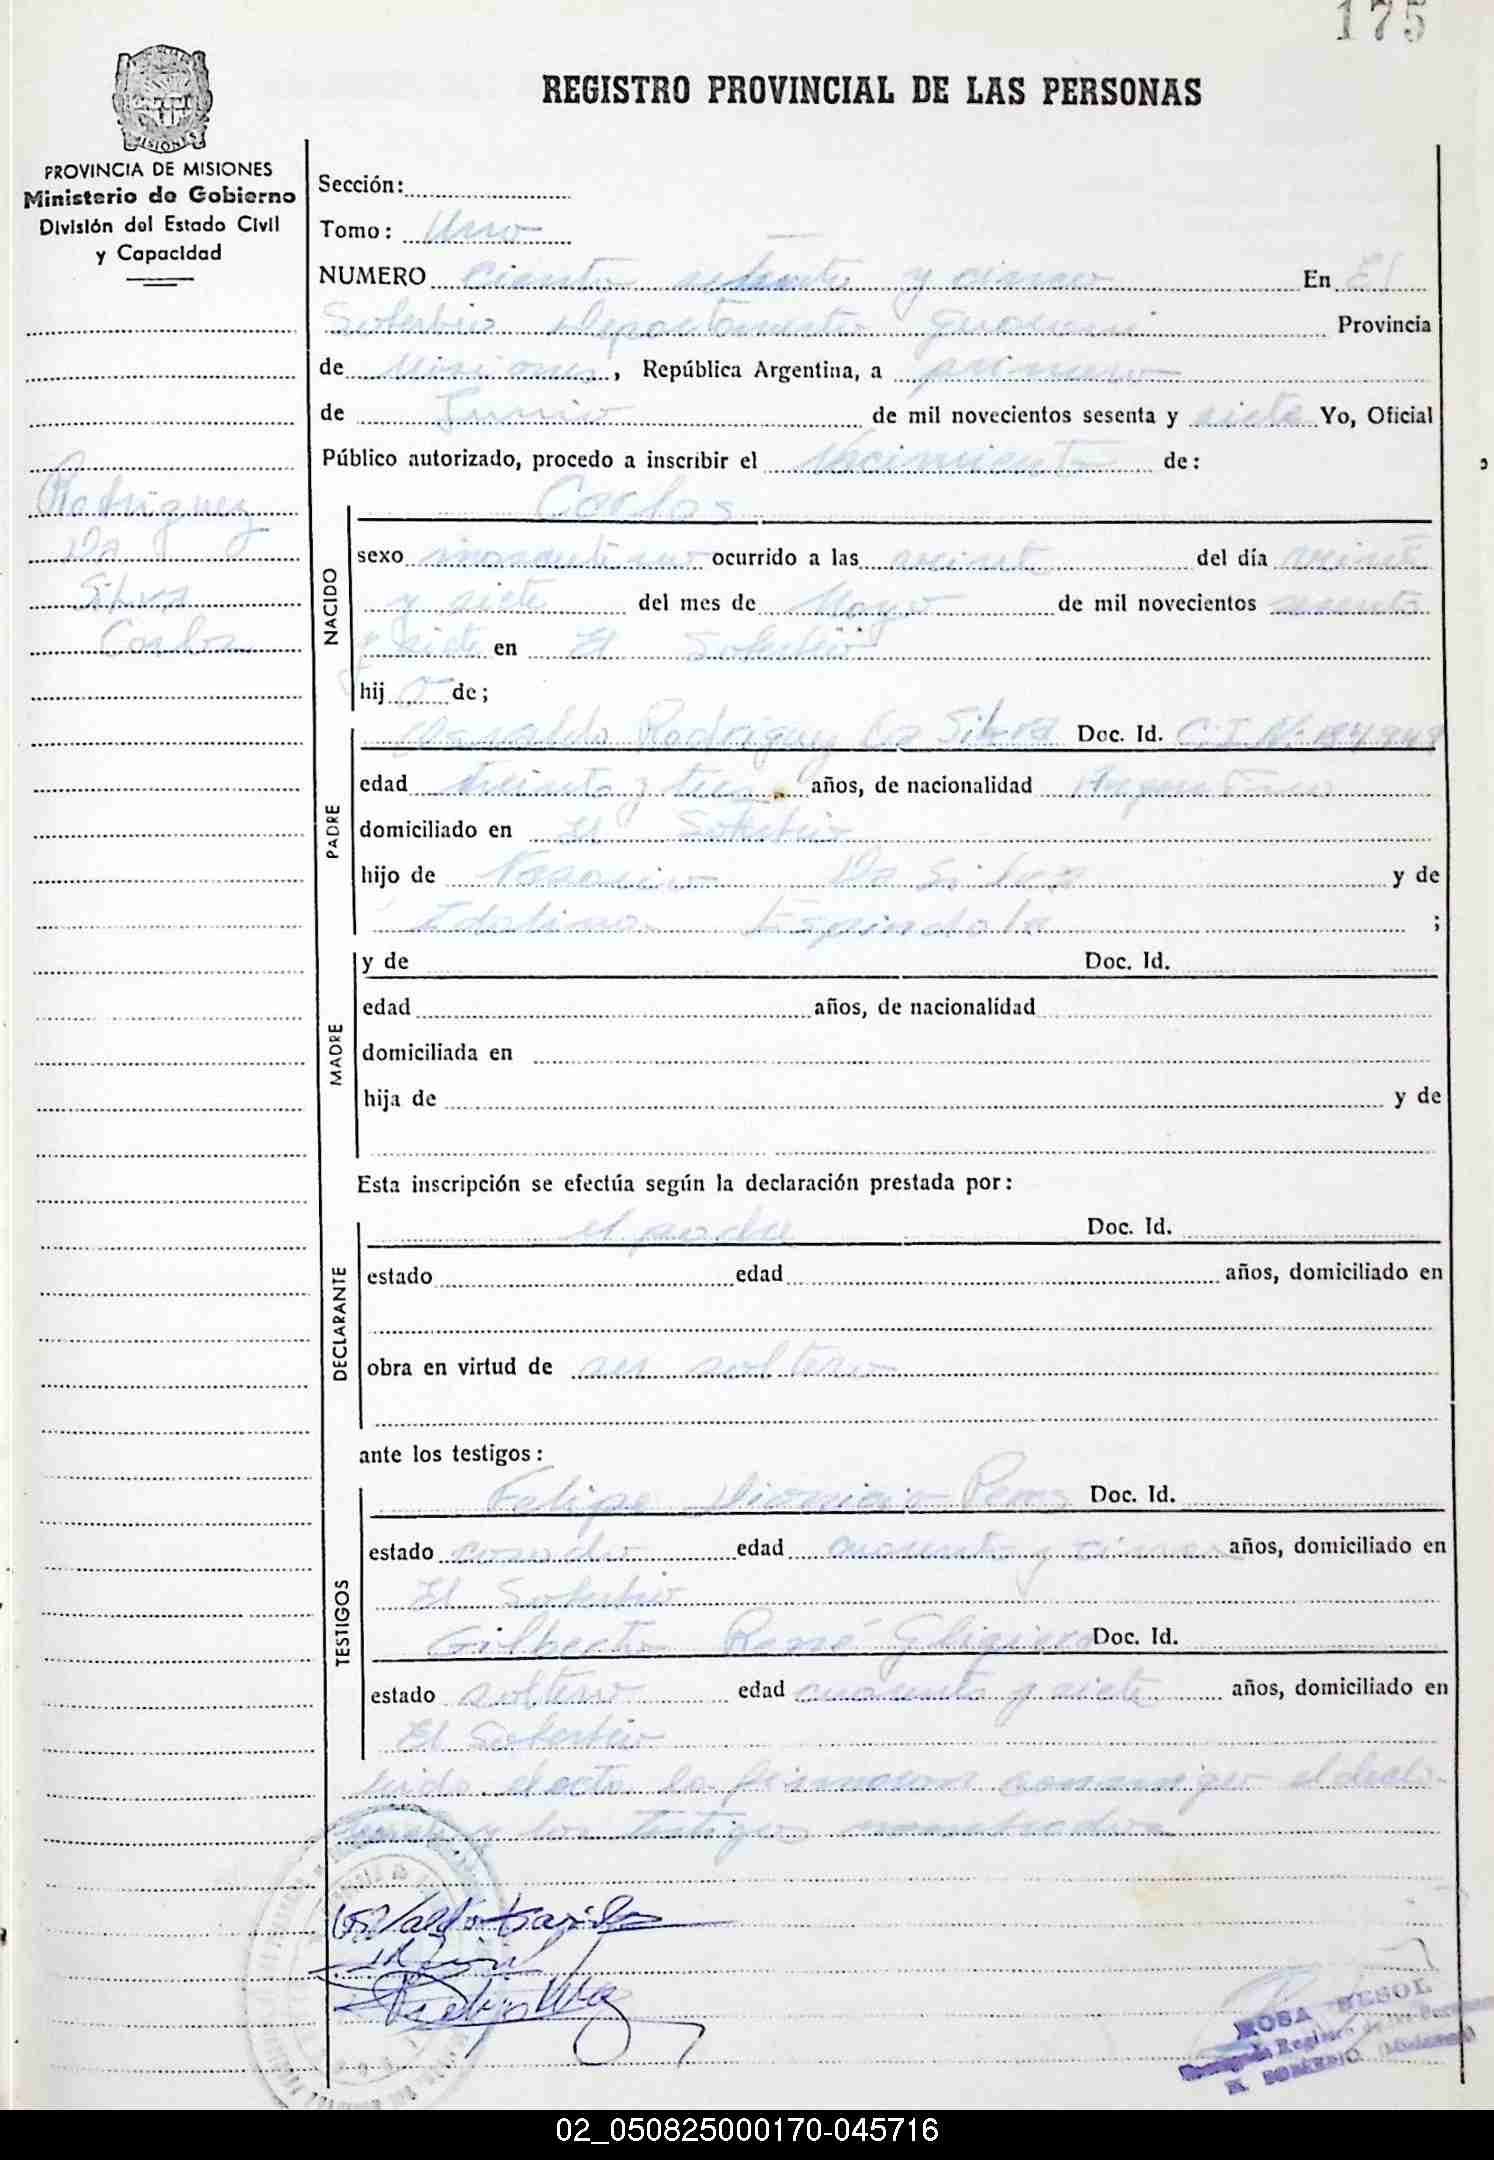 175
REGISTRO PROVINCIAL DE LAS PERSONAS
MISIONES
PROVINCIA DE MISIONES
Ministerio de Gobierno
División del Estado Civil
y Capacidad
Rodriguez
Da
Silva
Carlos
Sección:
Tomo: Uno
NUMERO Ciento setenta y cinco En El
Soberbio Departamento Guarani Provincia
de Misiones, República Argentina, a primero
de Junio de mil novecientos sesenta y siete Yo, Oficial
Público autorizado, procedo a inscribir el Nacimiento de:
Carlos
NACIDO
sexo masculino ocurrido a las veinte del día veinte
y siete del mes de Mayo de mil novecientos sesenta
y siete en El Soberbio
hijo de;
PADRE
Osvaldo Rodriguez Da Silva Doc. Id. C.I. Nº
edad treinta y tres años, de nacionalidad Argentino
domiciliado en El Soberbio
hijo de Da Silva y de
Espindola ;
MADRE
y de Doc. Id.
edad años, de nacionalidad
domiciliada en
hija de y de
Esta inscripción se efectúa según la declaración prestada por:
DECLARANTE
el padre Doc. Id.
estado edad años, domiciliado en
obra en virtud de ser soltero
ante los testigos:
TESTIGOS
Felipe Dionicio Doc. Id.
estado casado edad cuarenta y años, domiciliado en
El Soberbio
Gilberto René Doc. Id.
estado soltero edad cuarenta y siete años, domiciliado en
El Soberbio
Leida el acta la firmaron conmigo el decla-
rante y los testigos nombrados
ROSA
EL SOBERBIO (Misiones)
02_050825000170-045716